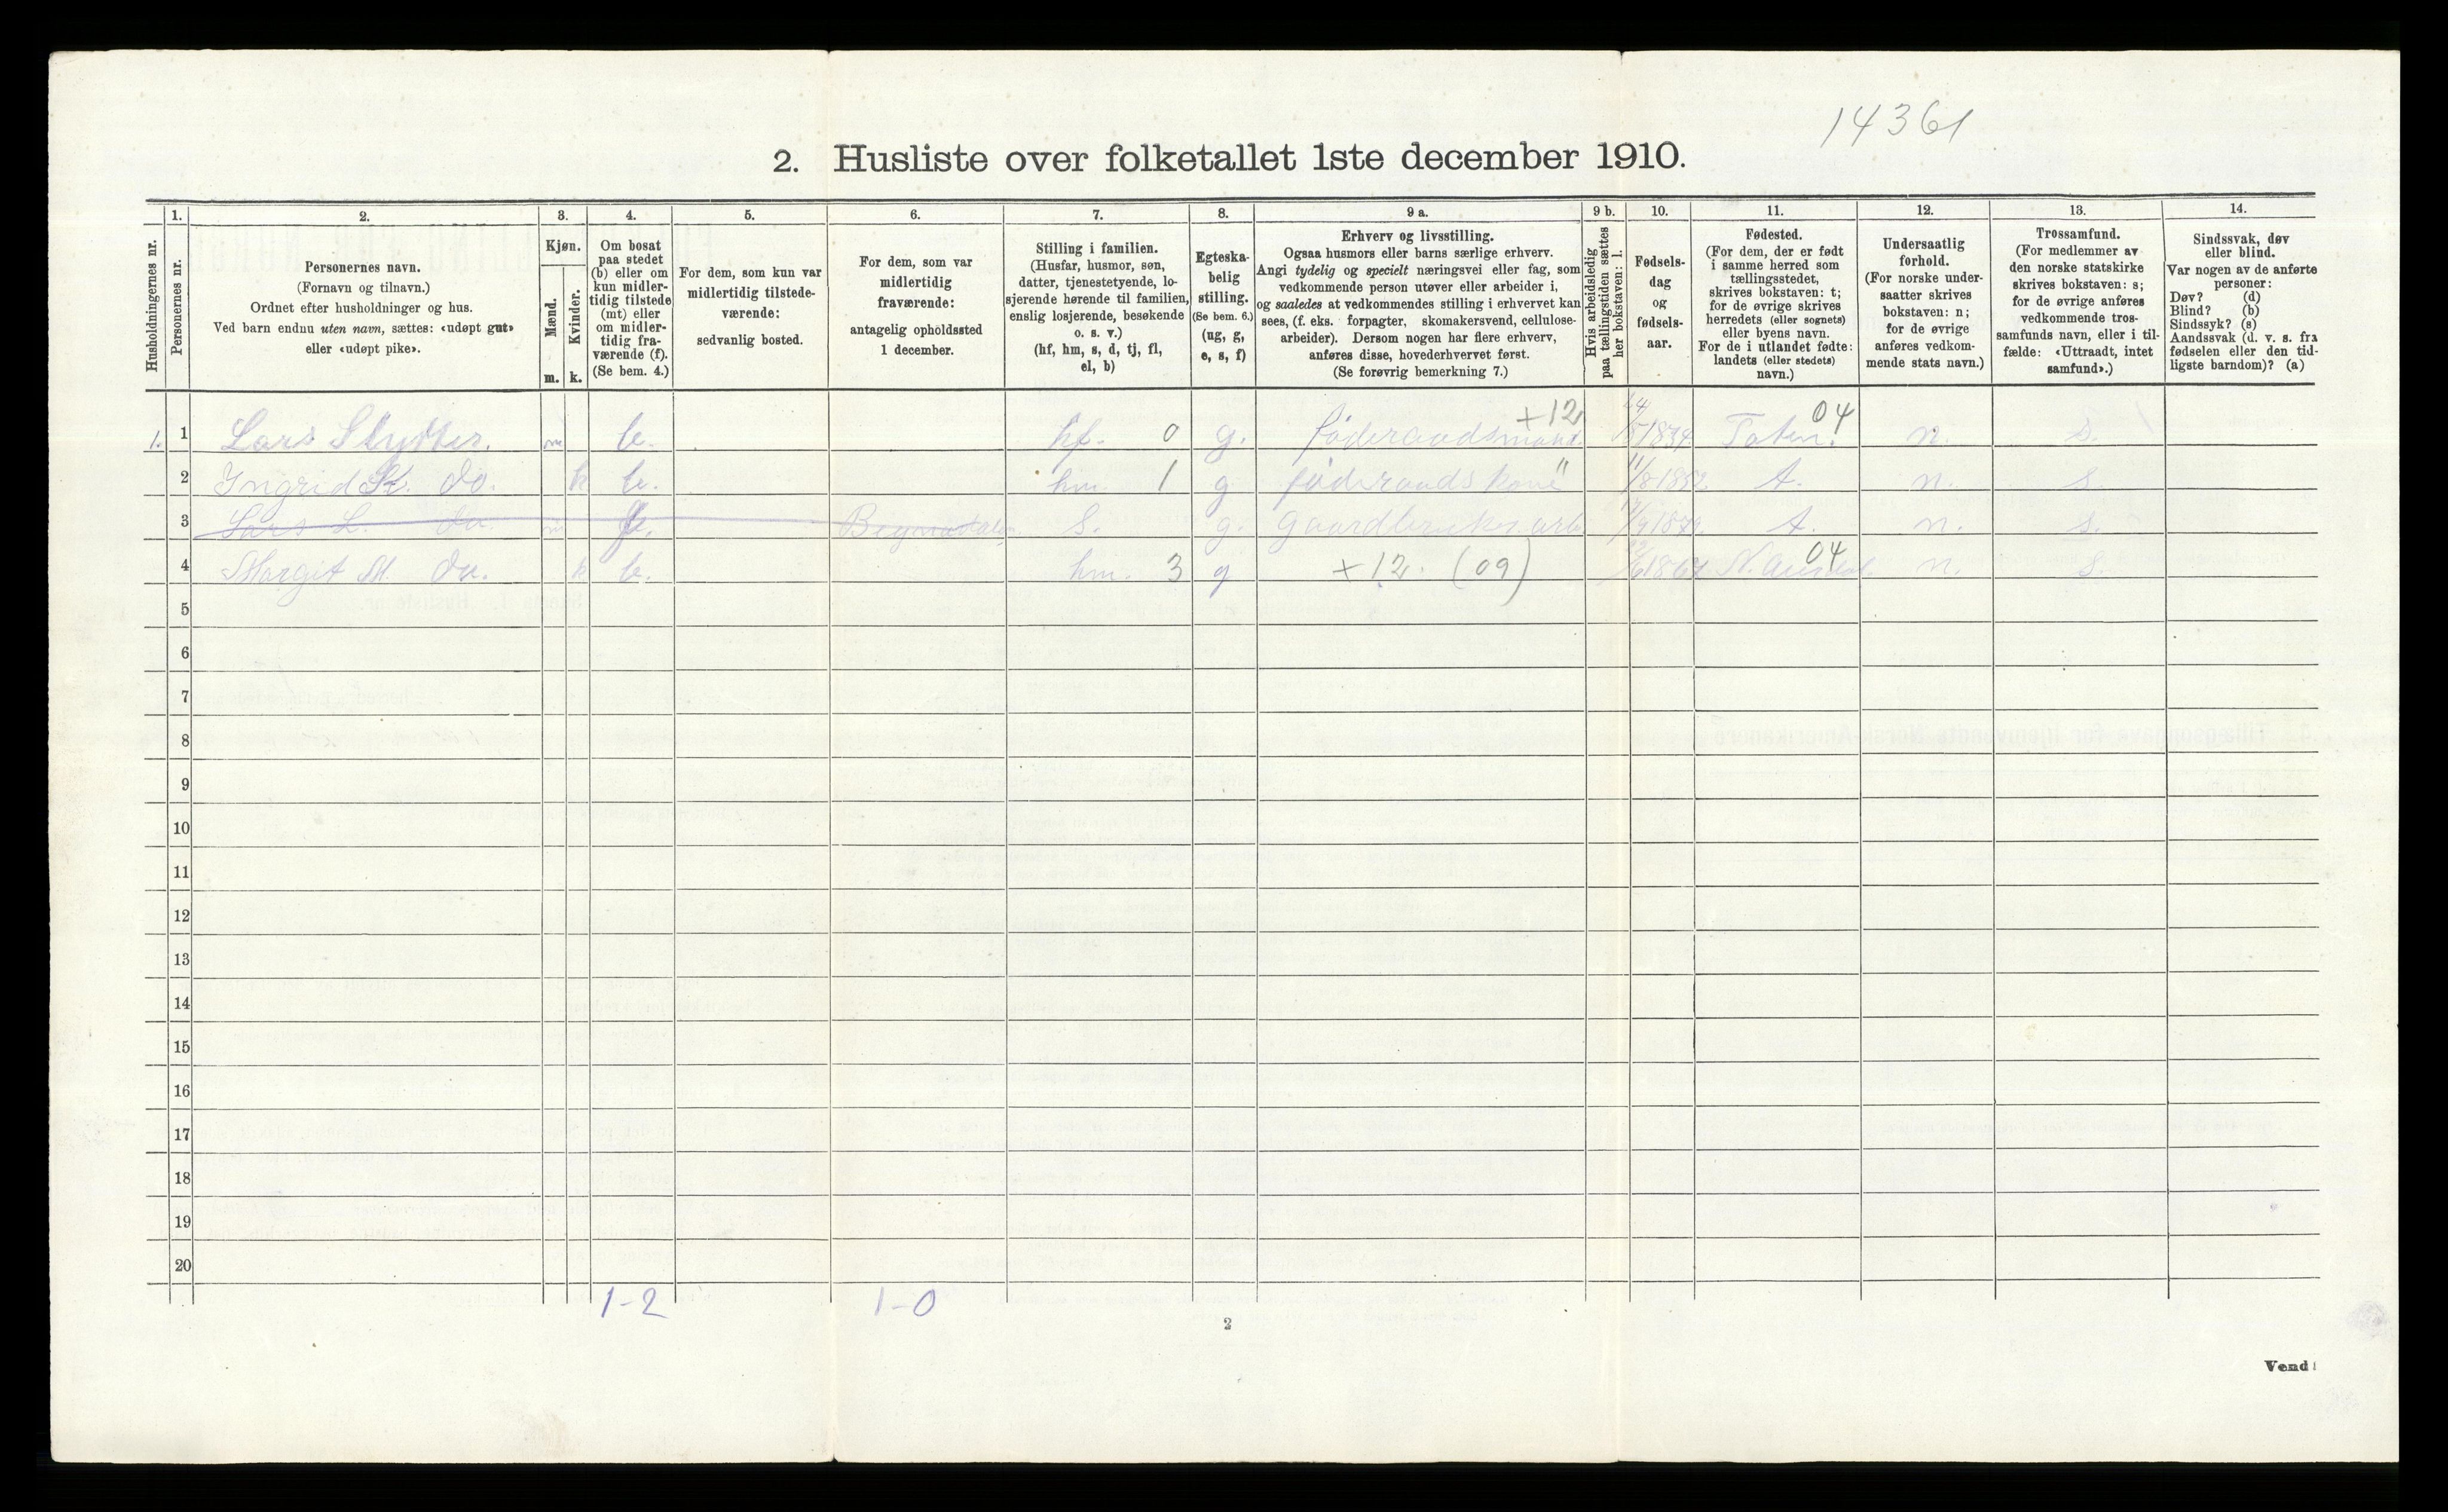 14361
2. Husliste over folketallet 1ste december 1910.
Husholdningernes nr.
1.
Personernes nr.
2.
Personernes navn.
(Fornavn og tilnavn.)
Ordnet efter husholdninger og hus.
Ved barn endnu uten navn, sættes: «udøpt gut»
eller «udøpt pike».
3.
Kjøn.
Mænd.
Kvinder.
m. k.
4.
Om bosat
paa stedet
(b) eller om
kun midler-
tidig tilstede
(mt) eller
om midler-
tidig fra-
værende (f).
(Se bem. 4.)
5.
For dem, som kun var
midlertidig tilstede-
værende:
sedvanlig bosted.
6.
For dem, som var
midlertidig
fraværende:
antagelig opholdssted
1 december.
7.
Stilling i familien.
(Husfar, husmor, søn,
datter, tjenestetyende, lo-
sjerende hørende til familien,
enslig losjerende, besøkende
o. s. v.)
(hf, hm, s, d, tj, fl,
el, b)
8.
Egteska-
belig
stilling.
(Se bem. 6.)
(ug, g,
e, s, f)
9 a.
Erhverv og livsstilling.
Ogsaa husmors eller barns særlige erhverv.
Angi tydelig og specielt næringsvei eller fag, som
vedkommende person utøver eller arbeider i,
og saaledes at vedkommendes stilling i erhvervet kan
sees, (f. eks. forpagter, skomakersvend, cellulose-
arbeider). Dersom nogen har flere erhverv,
anføres disse, hovederhvervet først.
(Se forøvrig bemerkning 7.)
9 b.
Hvis arbeidsledig
paa tællingstiden sættes
her bokstaven: l.
10.
Fødsels-
dag
og
fødsels-
aar.
11.
Fødested.
(For dem, der er født
i samme herred som
tællingsstedet,
skrives bokstaven: t;
for de øvrige skrives
herredets (eller sognets)
eller byens navn.
For de i utlandet fødte:
landets (eller stedets)
navn.)
12.
Undersaatlig
forhold.
(For norske under-
saatter skrives
bokstaven: n;
for de øvrige
anføres vedkom-
mende stats navn.)
13.
Trossamfund.
(For medlemmer av
den norske statskirke
skrives bokstaven: s;
for de øvrige anføres
vedkommende tros-
samfunds navn, eller i til-
fælde: «Uttraadt, intet
samfund».)
14.
Sindssvak, døv
eller blind.
Var nogen av de anførte
personer:
Døv? (d)
Blind? (b)
Sindssyk? (s)
Aandssvak (d. v. s. fra
fødselen eller den tid-
ligste barndom)? (a)
1. 1 Lars m b. hf. 0 g. føderaadsmand +12 1834 Toten. 04 n. s.
2 Ingrid do. k b. hm. 1 g føderaadskone " 11/8 t. n. s.
3 Lars L. do. m f. s. g. gaardbruker t. n. s.
4 Margit M. do. k b. hm. 3 g +12. (09) 04 n. s.
5
6
7
8
9
10
11
12
13
14
15
16
17
18
19
20
1-2 1-0
2
Vend!